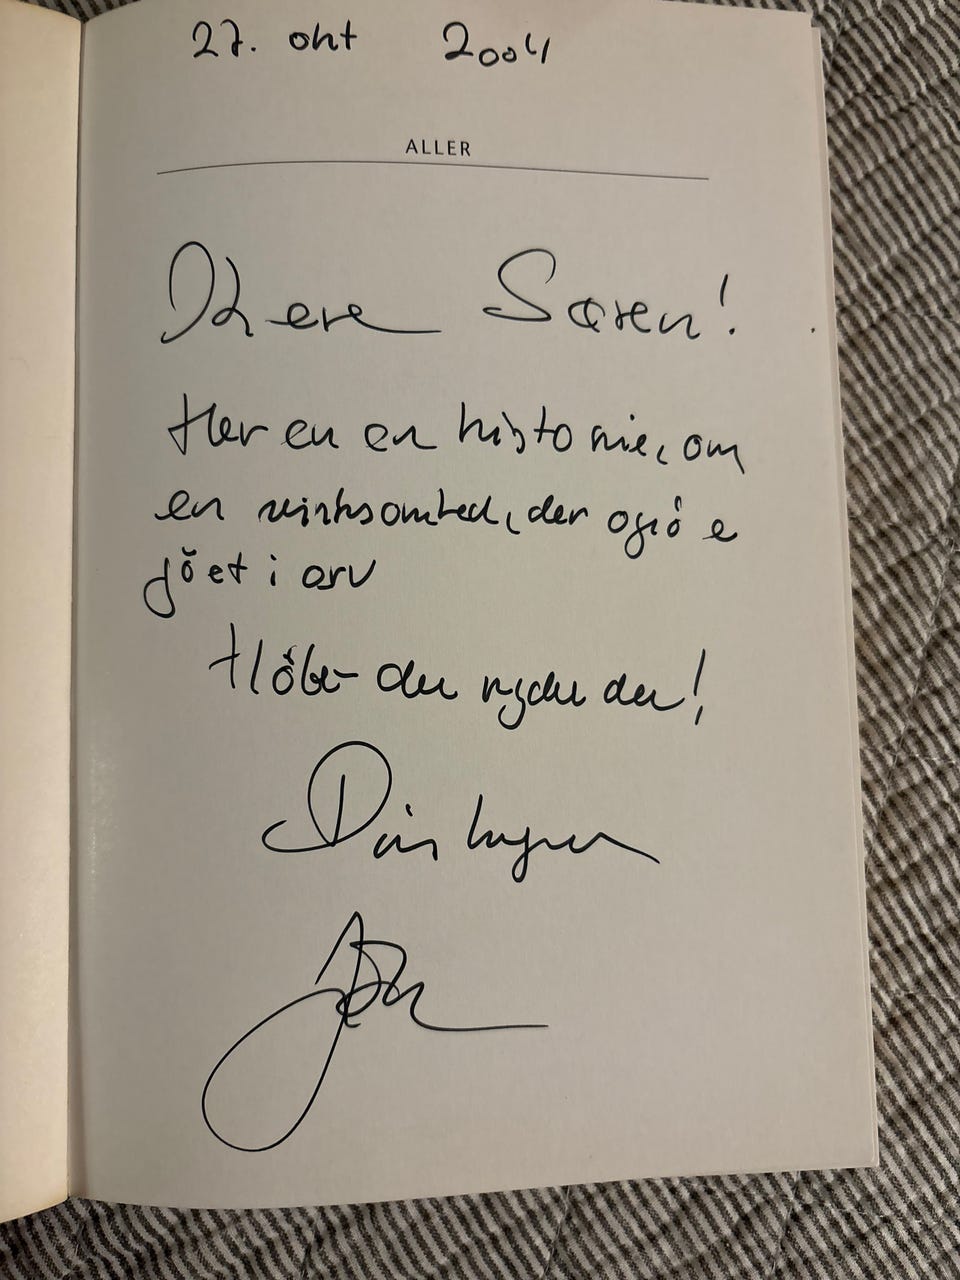 27. okt 2004
ALLER
Kære Søren!
Her er en historie, om
en virksomhed, der også e
gået i arv
Håber du nyder den!
Din